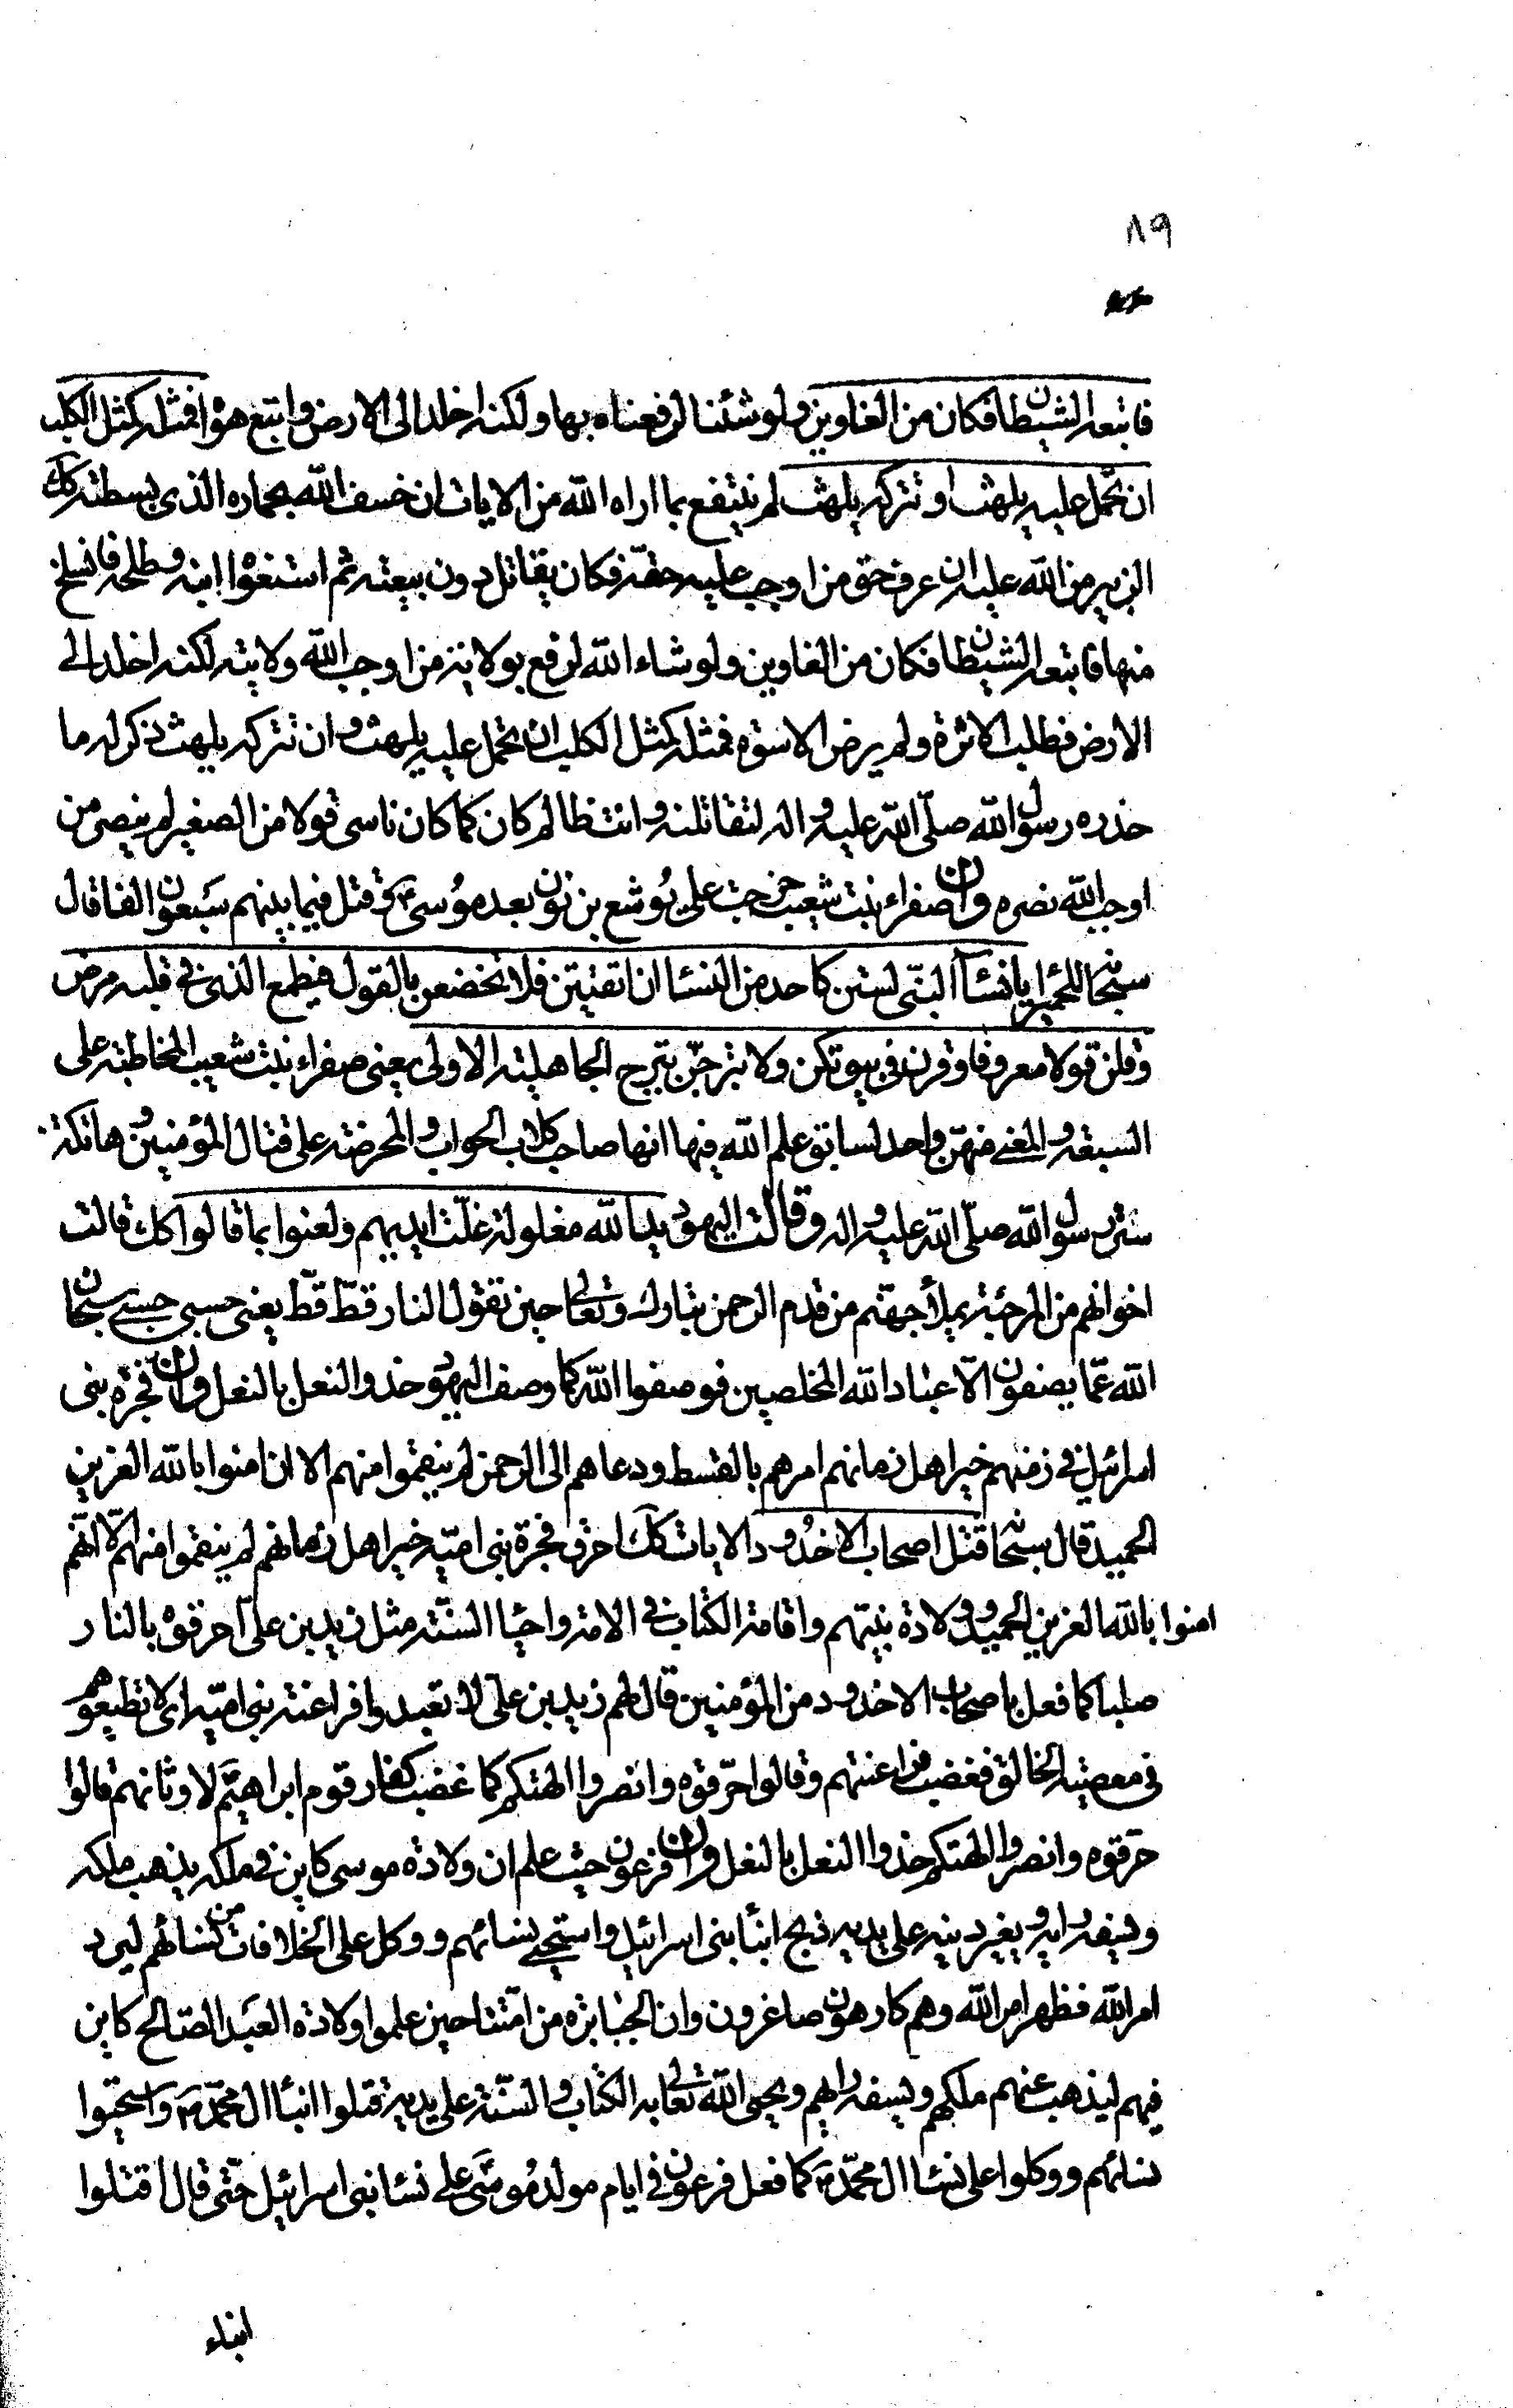 ٨٩
فاتبعه الشيطان فكان من الغاوين ولو شئنا لرفعناه بها ولكنه اخلد الى الارض واتبع هواه فمثله كمثل الكلب
ان تحمل عليه يلهث او تتركه يلهث لم ينتفع بما اراه الله من الايات ان خسف الله بحماره الذى بسطته كك
الزبير من الله عليه ان عرف حق من اوجب عليه حقه فكان يقاتل دون بيعته ثم استغواه ابنه وطلحه فانسلخ
منها فاتبعه الشيطان فكان من الغاوين ولو شاء الله لرفع بولاية من اوجب الله ولايته لكنه اخلد الى
الارض فطلب الاثرة ولم يرض الاسوة فمثله كمثل الكلب ان تحمل عليه يلهث وان تتركه يلهث ذكر له ما
حذره رسول الله صلّى الله عليه واله لتقاتلنه وانت ظالم كان كما كان ناسى قولا من الصغير لم ينصر من
اوجب الله نصره وان صفراء بنت شعيب خرجت على يوشع بن نون بعد موسى ع فقتل فيما بينهم سبعون الفا قال
سبحانه للحميراء يا نساء النبّى لستن كاحد من النساء ان اتقيتن فلا تخضعن بالقول فيطمع الذى فى قلبه مرض
وقلن قولا معروفا وقرن فى بيوتكن ولا تبرجّن تبرج الجاهلية الاولى يعنى صفراء بنت شعيب المخاطبة على
السبقة والمعنى منهّن واحد لسابق علم الله فيها انها صاحب كلاب الحواب والمحرضة على قتال المؤمنين وهاتكة
ستر رسول الله صلّى الله عليه واله وقالت اليهود يد الله مغلولة غلّت ايديهم ولعنوا بما قالوا كك قالت
اخوانهم من المرجئة يملأ جهنّم من قدم الرحمن تبارك وتعالى حين تقول النار قطّ قطّ يعنى حسبى حسبى سبحان
الله عمّا يصفون الّا عباد الله المخلصين فوصفوا الله كما وصف اليهود حذو النعل بالنعل وان فجرة بنى
اسرائيل فى زمنهم خير اهل زمانهم امرهم بالقسط ودعاهم الى الرحمن لم ينقموا منهم الا ان امنوا بالله العزيز
الحميد قال سبحانه قتل اصحاب الاخدود الايات كك احرق فجرة بنى اميّه خير اهل زمانهم لم ينقموا منهم الّا انّهم
امنوا بالله العزيز الحميد وولادة نبيّهم واقامة الكتاب فى الامة واحياء السنّة مثل زيد بن علىّ احرقوه بالنار
صلبا كما فعل باصحاب الاخدود من المؤمنين قال لهم زيد بن على لا تعبدوا فراعنة بنى اميّه اى لا تطيعوهم
فى معصية الخالق فغضب فراعنتهم وقالوا حرّقوه وانصروا الهتكم كما غضب كفار قوم ابراهيم ع لاوثانهم قالوا
حرقوه وانصروا الهتكم حذوا النعل بالنعل وان فرعون حيث علم ان ولادة موسى كاين فى ملكه يذهب ملكه
ويسفه رايه ويغير دينه على يديه ذبح ابناء بنى اسرائيل واستحيى نسائهم ووكل على الخلافات من نسائهم ليرد
امر الله فظهر امر الله وهم كارهون صاغرون وان الجبابرة من امّتنا حين علموا ولادة العبد الصّالح كاين
فيهم ليذهب عنهم ملكهم ويسفه رايهم ويحيى الله تعالى به الكتاب والسّنّة على يديه قتلوا ابناء ال محمّد ص واستحيوا
نسائهم ووكلوا على نساء ال محمّد ص كما فعل فرعون فى ايام مولد موسى ع على نساء بنى اسرائيل حتّى قال اقتلوا
ابناء